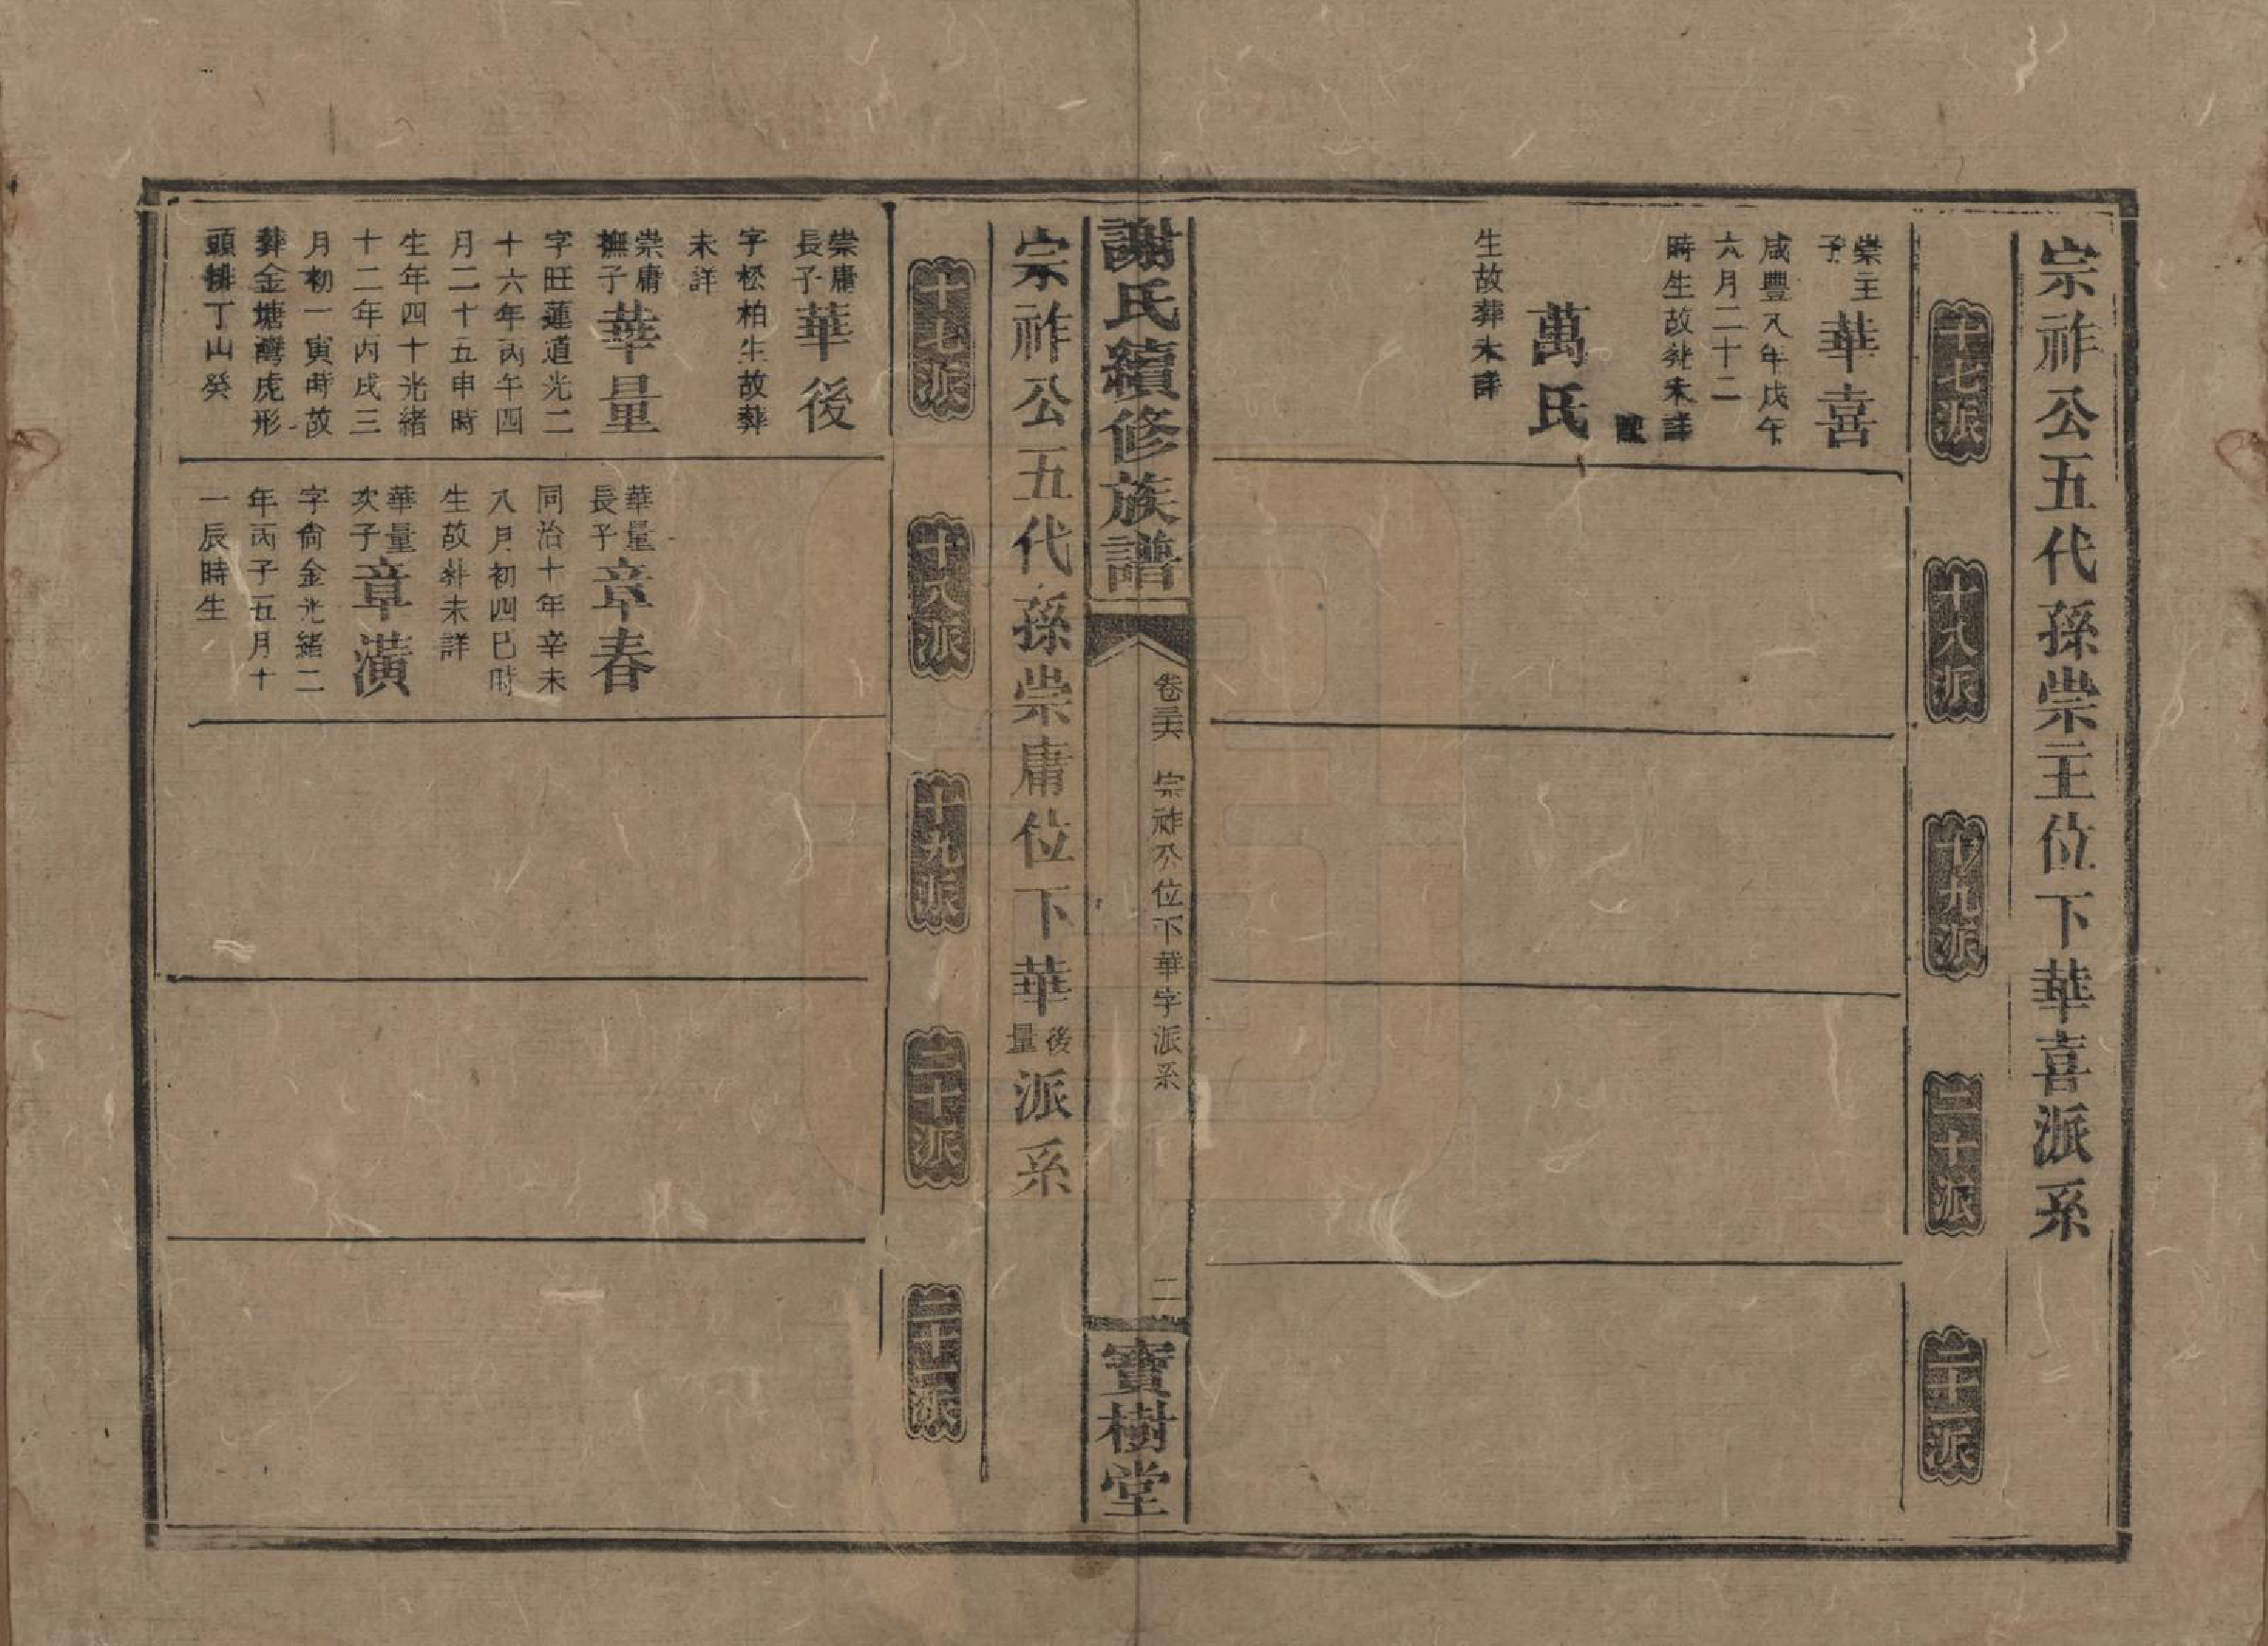 宗祚公五代孫崇主位下華喜派系
十七派
十八派
十九派
二十派
二十一派
崇主
子
華喜
咸豐八年戊午
六月二十二
時生故葬未詳
配
萬氏
生故葬未詳
謝氏續修族譜
卷三六 宗祚公位下華字派系
二
寶樹堂
宗祚公五代孫崇庸位下華後量派系
十七派
十八派
十九派
二十派
二十一派
崇庸
長子
華後
字松柏生故葬
未詳
崇庸
撫子
華量
字旺蓮道光二
十六年丙午四
月二十五申時
生年四十光緒
十二年丙戌三
月初一寅時故
葬金塘灣虎形
頭排丁山癸
華量
長子
章春
同治十年辛未
八月初四巳時
生故葬未詳
華量
次子
章潢
字尙金光緒二
年丙子五月十
一辰時生